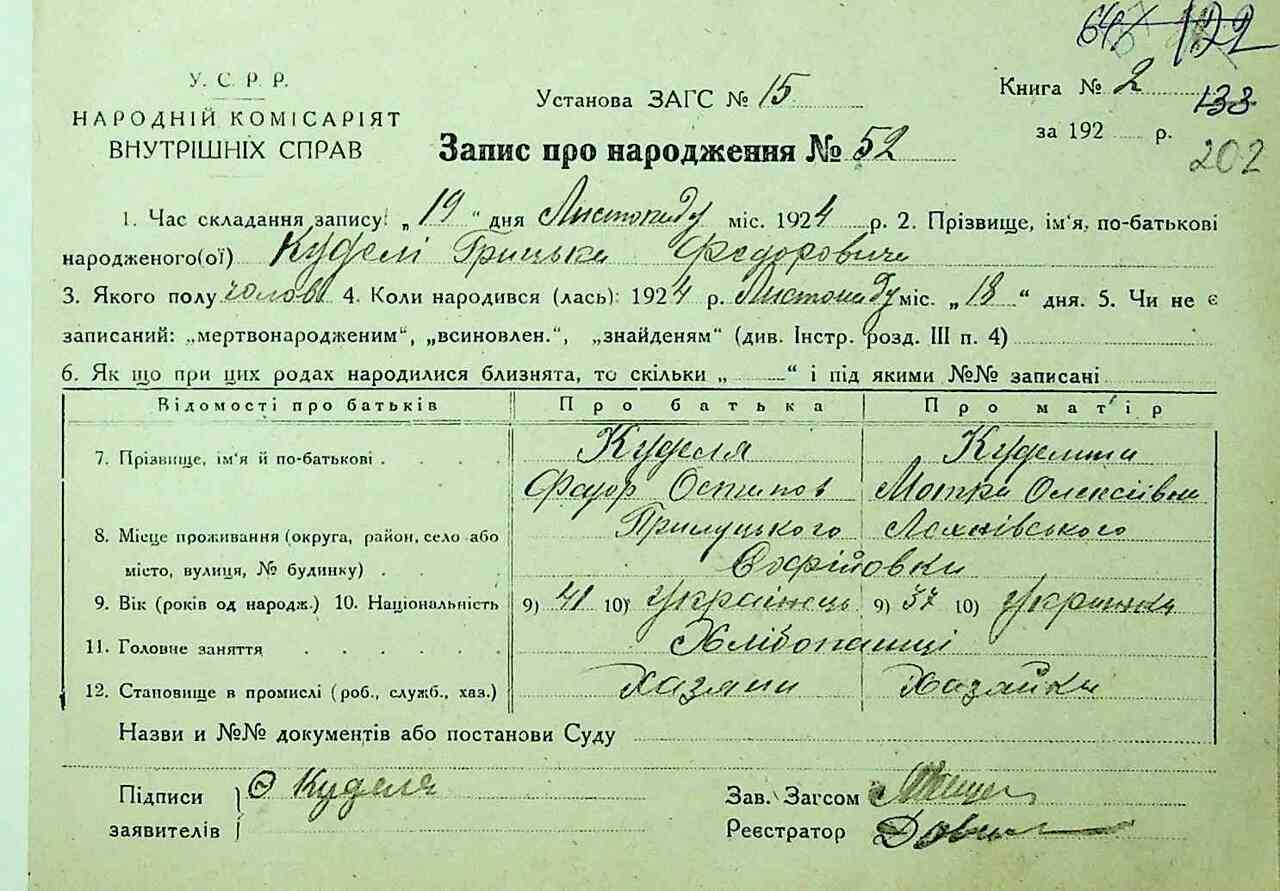 122
У. С. Р. Р.
НАРОДНІЙ КОМІСАРІЯТ
ВНУТРІШНІХ СПРАВ
Установа ЗАГС № 15
Книга № 2
133
за 192 р.
202
Запис про народження № 52
1. Час складання запису: „ 19 “ дня Листопаду міс. 1924 р. 2. Прізвище, ім‘я, по-батькові
народженого(ої) Куделі Грицька Федоровича
3. Якого полу чолов 4. Коли народився (лась): 1924 р. Листопаду міс. „ 18 “ дня. 5. Чи не є
записаний: „мертвонародженим“, „всиновлен.“, „знайденям“ (див. Інстр. розд. III п. 4)
6. Як що при цих родах народилися близнята, то скільки „ “ і під якими №№ записані
Відомості про батьків Про батька Про мат‘ір
7. Прізвище, ім‘я й по-батькові Куделя
Федор Остапов Мотря Олексіївна
8. Місце проживання (округа, район, село або Прилуцького
місто, вулиця, № будинку) Софіївка
9. Вік (років од народж.) 10. Національність 9) 41 10) Українець 9) 37 10) Українка
11. Головне заняття Хлібопашці
12. Становище в промислі (роб., служб., хаз.) Хазяин Хазайка
Назви и №№ документів або постанови Суду
Підписи Ф Куделя
заявителів
Зав. Загсом
Реєстратор